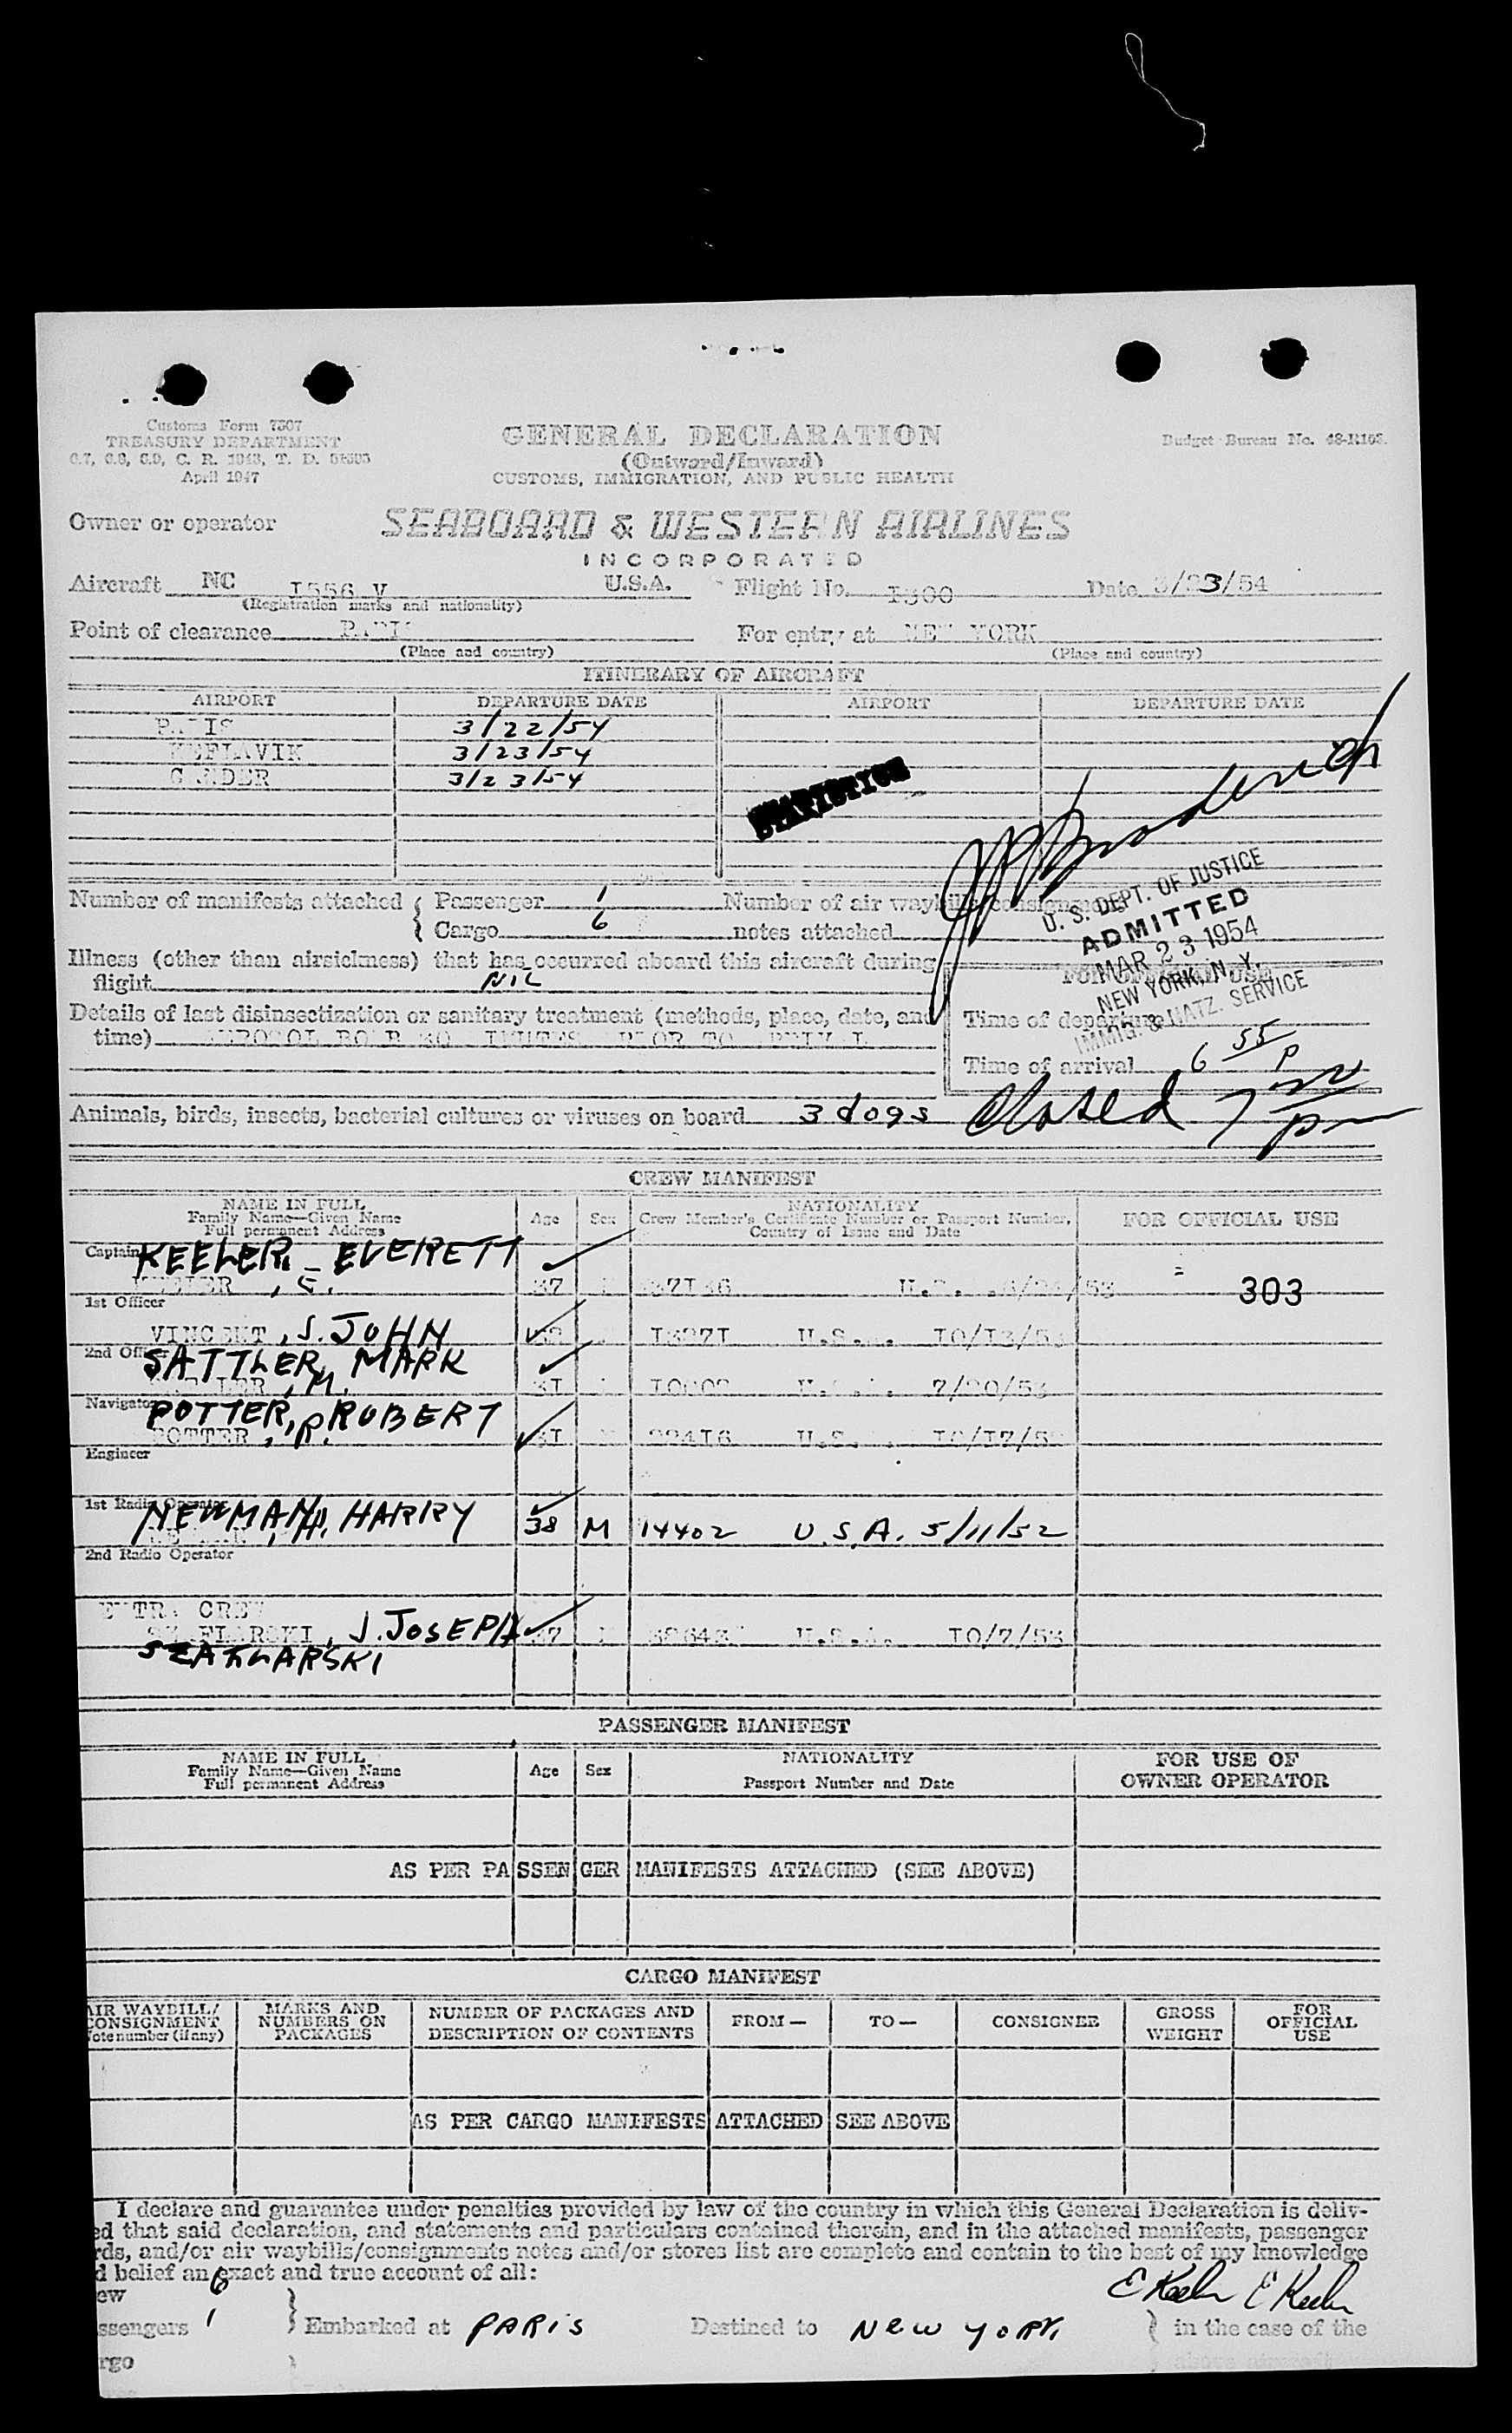 Customs Form 7507
TREASURY DEPARTMENT
April 1947
GENERAL DECLARATION
(Outward/Inward)
CUSTOMS, IMMIGRATION, AND PUBLIC HEALTH
Budget Bureau No.
Owner or operator SEABOARD & WESTERN AIRLINES
INCORPORATED
Aircraft NC I556 V U.S.A. Flight No. I300 Date 3/23/54
(Registration marks and nationality)
Point of clearance For entry at NEW YORK
(Place and country) (Place and country)
ITINERARY OF AIRCRAFT
AIRPORT DEPARTURE DATE AIRPORT DEPARTURE DATE
PARIS 3/22/54
KEFLAVIK 3/23/54
GANDER 3/23/54
STATISTICS
Number of manifests attached { Passenger 1 Number of air waybills/consignments
Cargo 6 notes attached
U. S. DEPT. OF JUSTICE
ADMITTED
MAR 23 1954
NEW YORK, N. Y.
IMMIG. & NATZ. SERVICE
Illness (other than airsickness) that has occurred aboard this aircraft during
flight NIL
FOR OFFICIAL USE
Details of last disinsectization or sanitary treatment (methods, place, date, and
time)
Time of departure
Time of arrival 6 55 P
Animals, birds, insects, bacterial cultures or viruses on board 3 dogs
Closed 7 pm
CREW MANIFEST
NAME IN FULL
Family Name—Given Name
Full permanent Address
Age Sex
NATIONALITY
Crew Member's Certificate Number or Passport Number,
Country of Issue and Date
FOR OFFICIAL USE
Captain KEELER, EVERETT
KEELER, E. 37 303
1st Officer
VINCENT, S. JOHN I0/I3/53
2nd Officer SATTLER, MARK
, M. 3I 7/20/53
Navigator POTTER, ROBERT
POTTER, R. 3I
Engineer
1st Radio Operator NEWMAN, HARRY 38 M 14402 U.S.A. 5/11/52
2nd Radio Operator
EXTRA CREW
J. JOSEPH 37 I0/7/53
SZAFLARSKI
PASSENGER MANIFEST
NAME IN FULL
Family Name—Given Name
Full permanent Address
Age Sex
NATIONALITY
Passport Number and Date
FOR USE OF
OWNER OPERATOR
AS PER PASSENGER MANIFESTS ATTACHED (SEE ABOVE)
CARGO MANIFEST
AIR WAYBILL/
CONSIGNMENT
Note number (if any)
MARKS AND
NUMBERS ON
PACKAGES
NUMBER OF PACKAGES AND
DESCRIPTION OF CONTENTS
FROM — TO — CONSIGNEE
GROSS
WEIGHT
FOR
OFFICIAL
USE
AS PER CARGO MANIFESTS ATTACHED SEE ABOVE
I declare and guarantee under penalties provided by law of the country in which this General Declaration is deliv-
ed that said declaration, and statements and particulars contained therein, and in the attached manifests, passenger
rds, and/or air waybills/consignments notes and/or stores list are complete and contain to the best of my knowledge
d belief an exact and true account of all:
ew 6 E Keeler E Keeler
ssengers 1 } Embarked at PARIS Destined to NEW YORK } in the case of the
rgo above aircraft